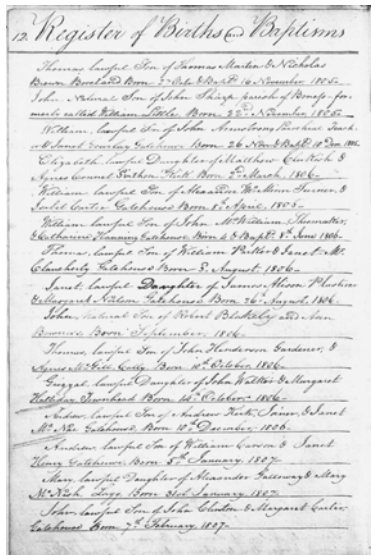 12. Register of Births and Baptisms
Thomas, lawful Son of Thomas Martin & Nicholas
Brown Boreland Born 3d Octr. & Baptd. 16 November 1805.
John Natural Son of John Sharp parish of for-
merly called William Little Born 22d November 1805.
William, lawful Son of John Armstrong Parochial Teach-
er & Janet Gatehouse Born 26 Novr & Baptd. 10 Decr. 1805.
Elizabeth, lawful Daughter of Matthew &
Agnes Kirk Born 2d March, 1806.
William lawful Son of Alexander McMinn Turner, &
Isabel Carter Gatehouse Born 8th April, 1806.
William lawful Son of John McWilliam Shoemaker,
& Catharine Hanning Gatehouse Born 4 & Baptd. 8th June 1806.
Thomas, lawful Son of William Parker & Janet Mc
Gatehouse Born 3. August, 1806.
Janet, lawful Daughter of James Alison Plasterer
& Margaret Neilson Gatehouse Born 24 August, 1806.
John, natural Son of Robert Blakely and Ann
Born September, 1806.
Thomas, lawful Son of John Henderson Gardener, &
Agnes McGill Cally Born 10th October, 1806.
Grizzal, lawful Daughter of John Walker & Margaret
Halliday Townhead Born 14th October, 1806.
Andrew, lawful Son of Andrew Kirk, Joiner, & Janet
McNae Gatehouse, Born 10th December, 1806.
Andrew, lawful Son of William Carson & Janet
Henry Gatehouse Born 5th January, 1807.
Mary, lawful Daughter of Alexander Galloway & Mary
McNish Born 31st January, 1807.
John, lawful Son of John Clinton & Margaret Carter,
Gatehouse Born 7th February, 1807.